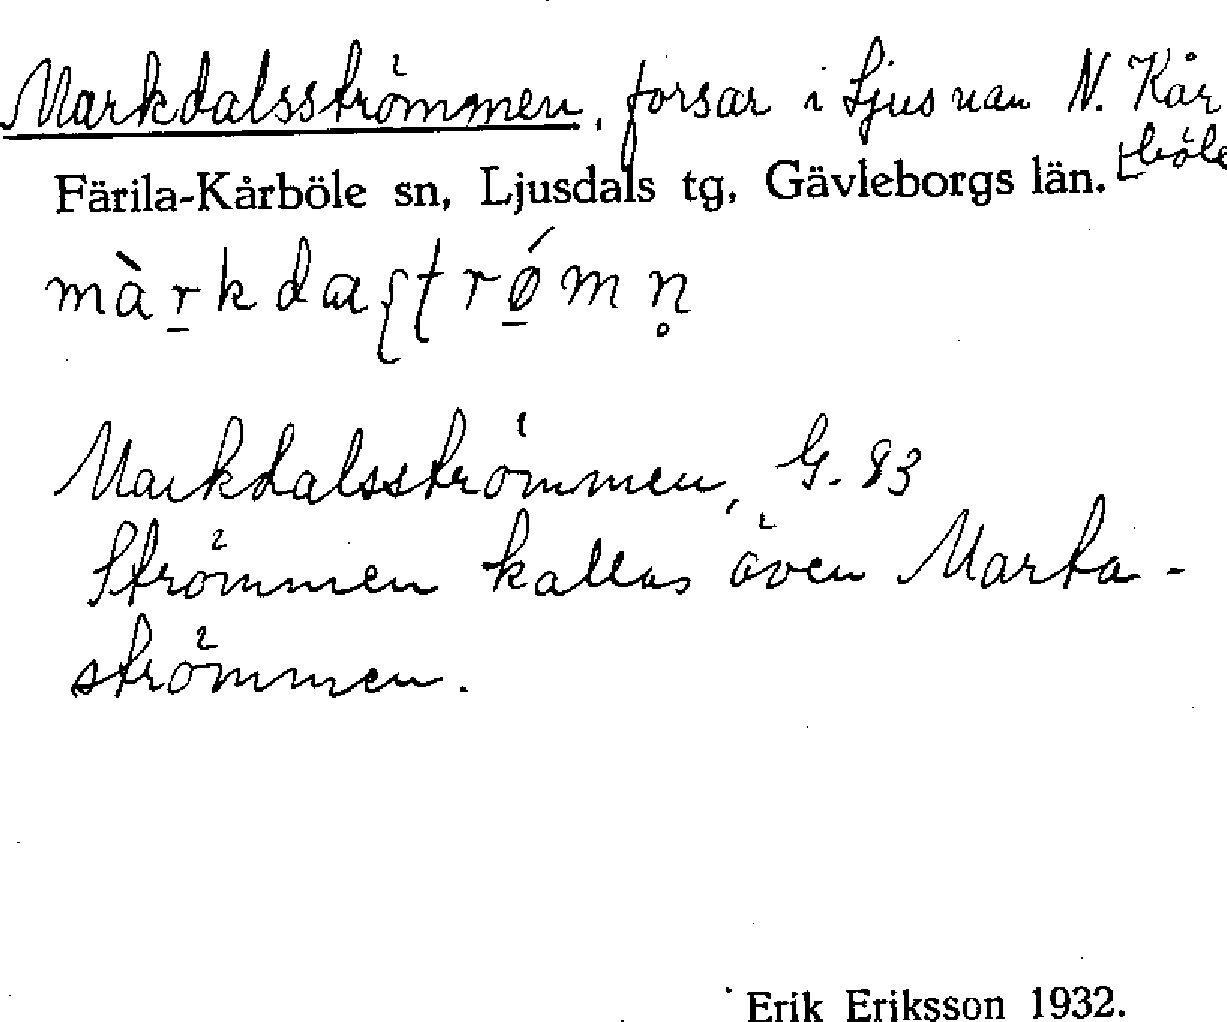 Markdalsströmmen, forsar i Ljusnan N. Kår
böle
Färila-Kårböle sn, Ljusdals tg, Gävleborgs län.
màr̠kdaʂʈrǿ̠mn̥
Markdalsströmmen, G. 93
Strömmen kallas även Marka-
strömmen.
Erik Eriksson 1932.